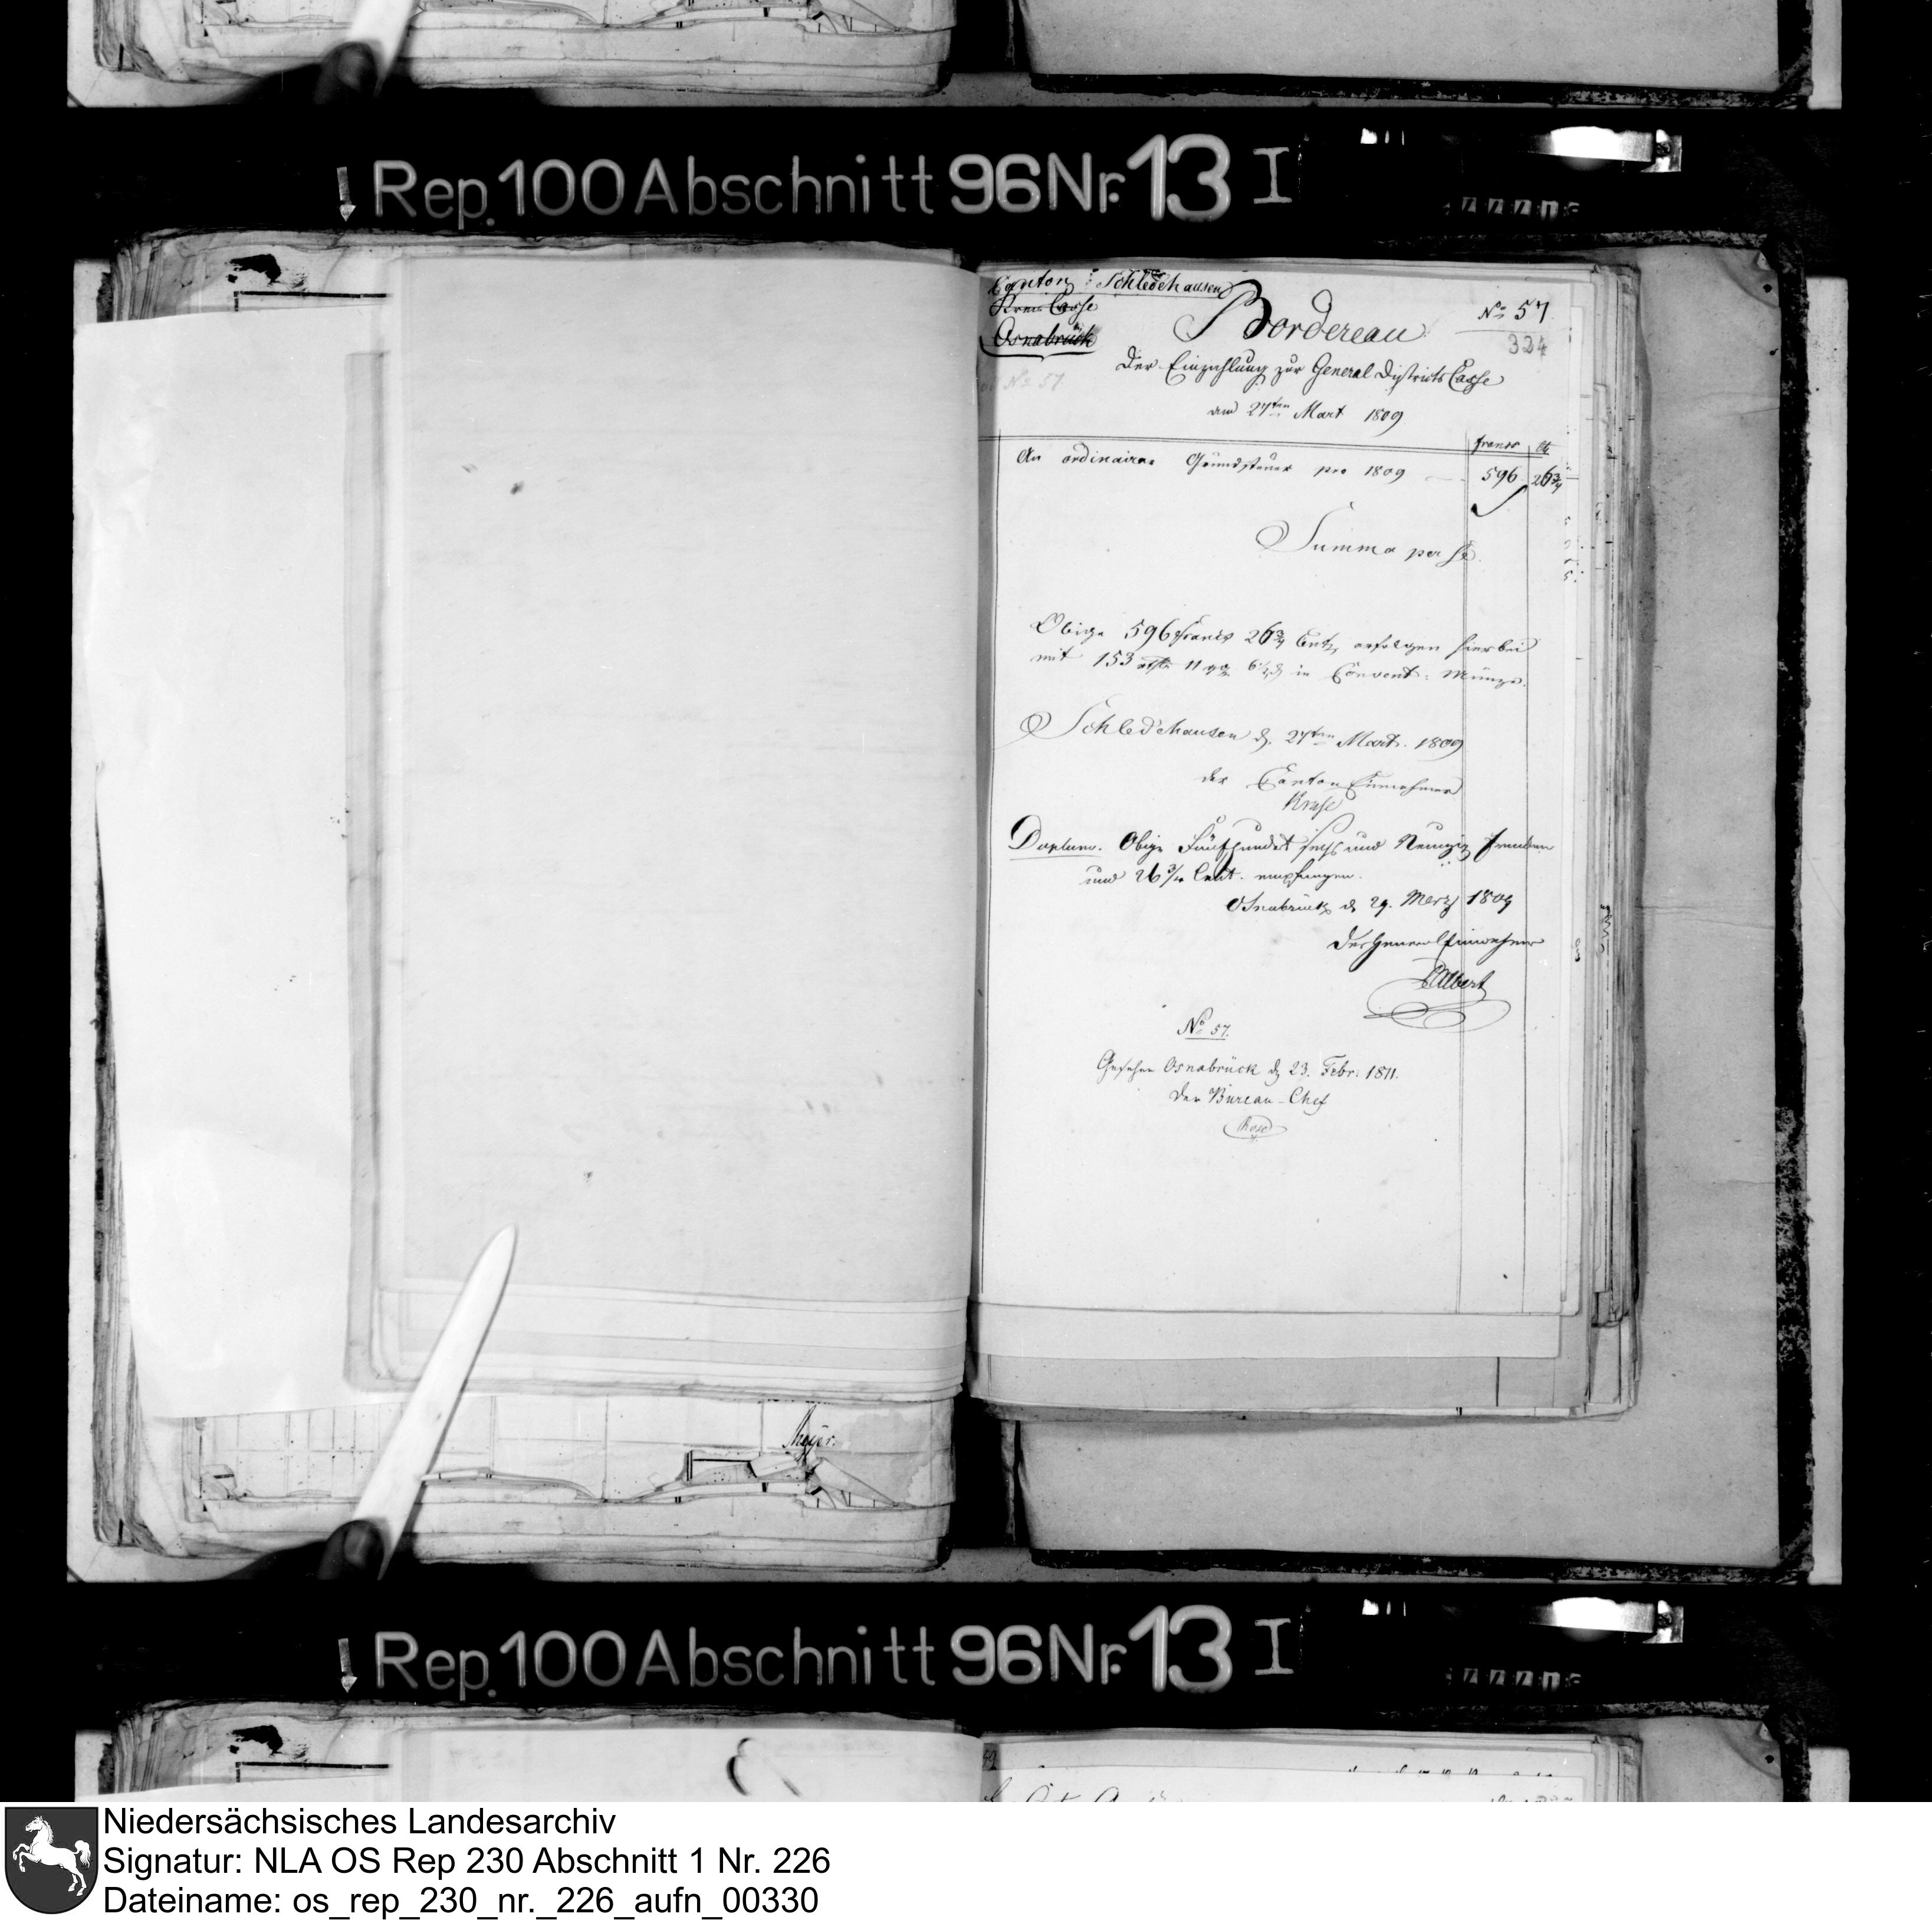 Rep. 100 Abschnitt 96 Nr. 13 I
Canton Schledehausen
Kreis Casse
Osnabrück
Bordereau
No 57
324
Der Einzahlung zur General Districts Casse
No 57
am 27ten Mart 1809
francs Ct
An ordinairer Grundsteuer pro 1809 596 26 3/4
Summa per se
Obige 596 Francs 26 3/4 Cent. erfolgen hierbei
mit 153 rthlr 11 ggr 6 1/2 d in Convent: Münze.
Schledehausen d. 27ten Mart. 1809
der Canton Einnehmer
Kruse
Obige Fünfhundert sechs und Neunzig Franken
und 26 3/4 Cent. empfangen.
Osnabrück d 29. Merz 1809
Der General Einnehmer
Albert
No 57.
Gesehen Osnabrück d 23. Febr: 1811.
Der Büreau-Chef
Meyer.
Rep. 100 Abschnitt 96 Nr. 13 I
Niedersächsisches Landesarchiv
Signatur: NLA OS Rep 230 Abschnitt 1 Nr. 226
Dateiname: os_rep_230_nr._226_aufn_00330